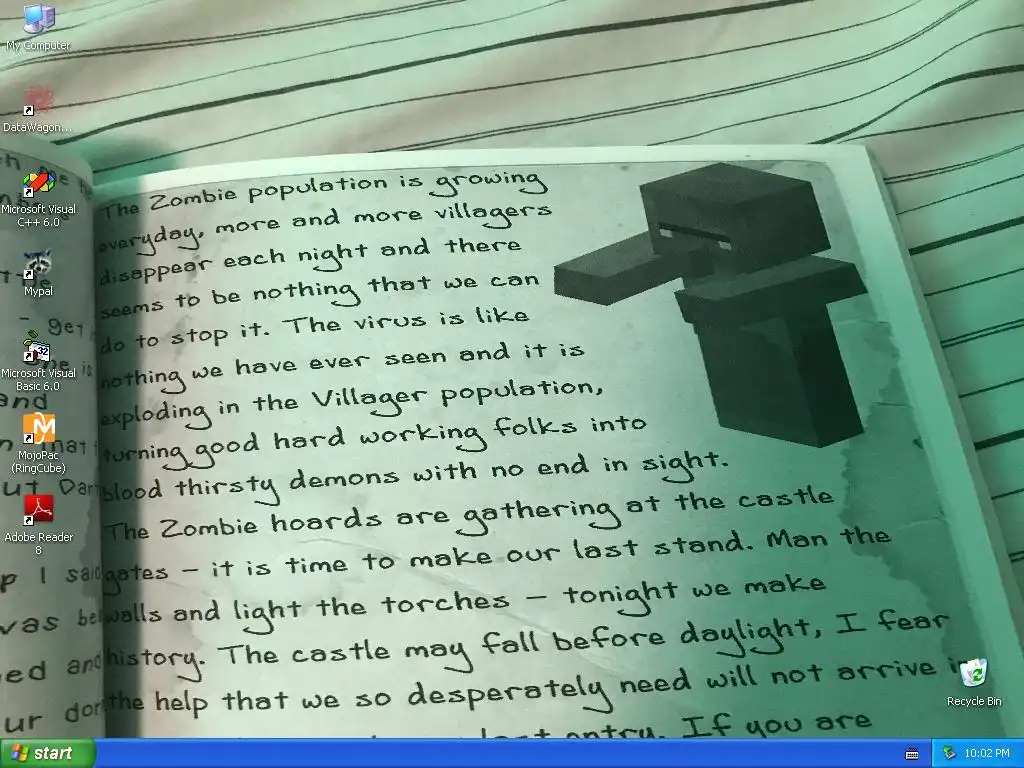 My Computer
DataWagon...
Microsoft Visual
C++ 6.0
Mypal
Microsoft Visual
Basic 6.0
MojoPac
(RingCube)
Adobe Reader
8
The Zombie population is growing
everyday, more and more villagers
disappear each night and there
seems to be nothing that we can
do to stop it. The virus is like
nothing we have ever seen and it is
exploding in the Villager population,
turning good hard working folks into
blood thirsty demons with no end in sight.
The Zombie hoards are gathering at the castle
gates – it is time to make our last stand. Man the
walls and light the torches – tonight we make
history. The castle may fall before daylight, I fear
the help that we so desperately need will not arrive
last entry. If you are
- get
and
p I said
was
ed and
ur
Recycle Bin
start
10:02 PM